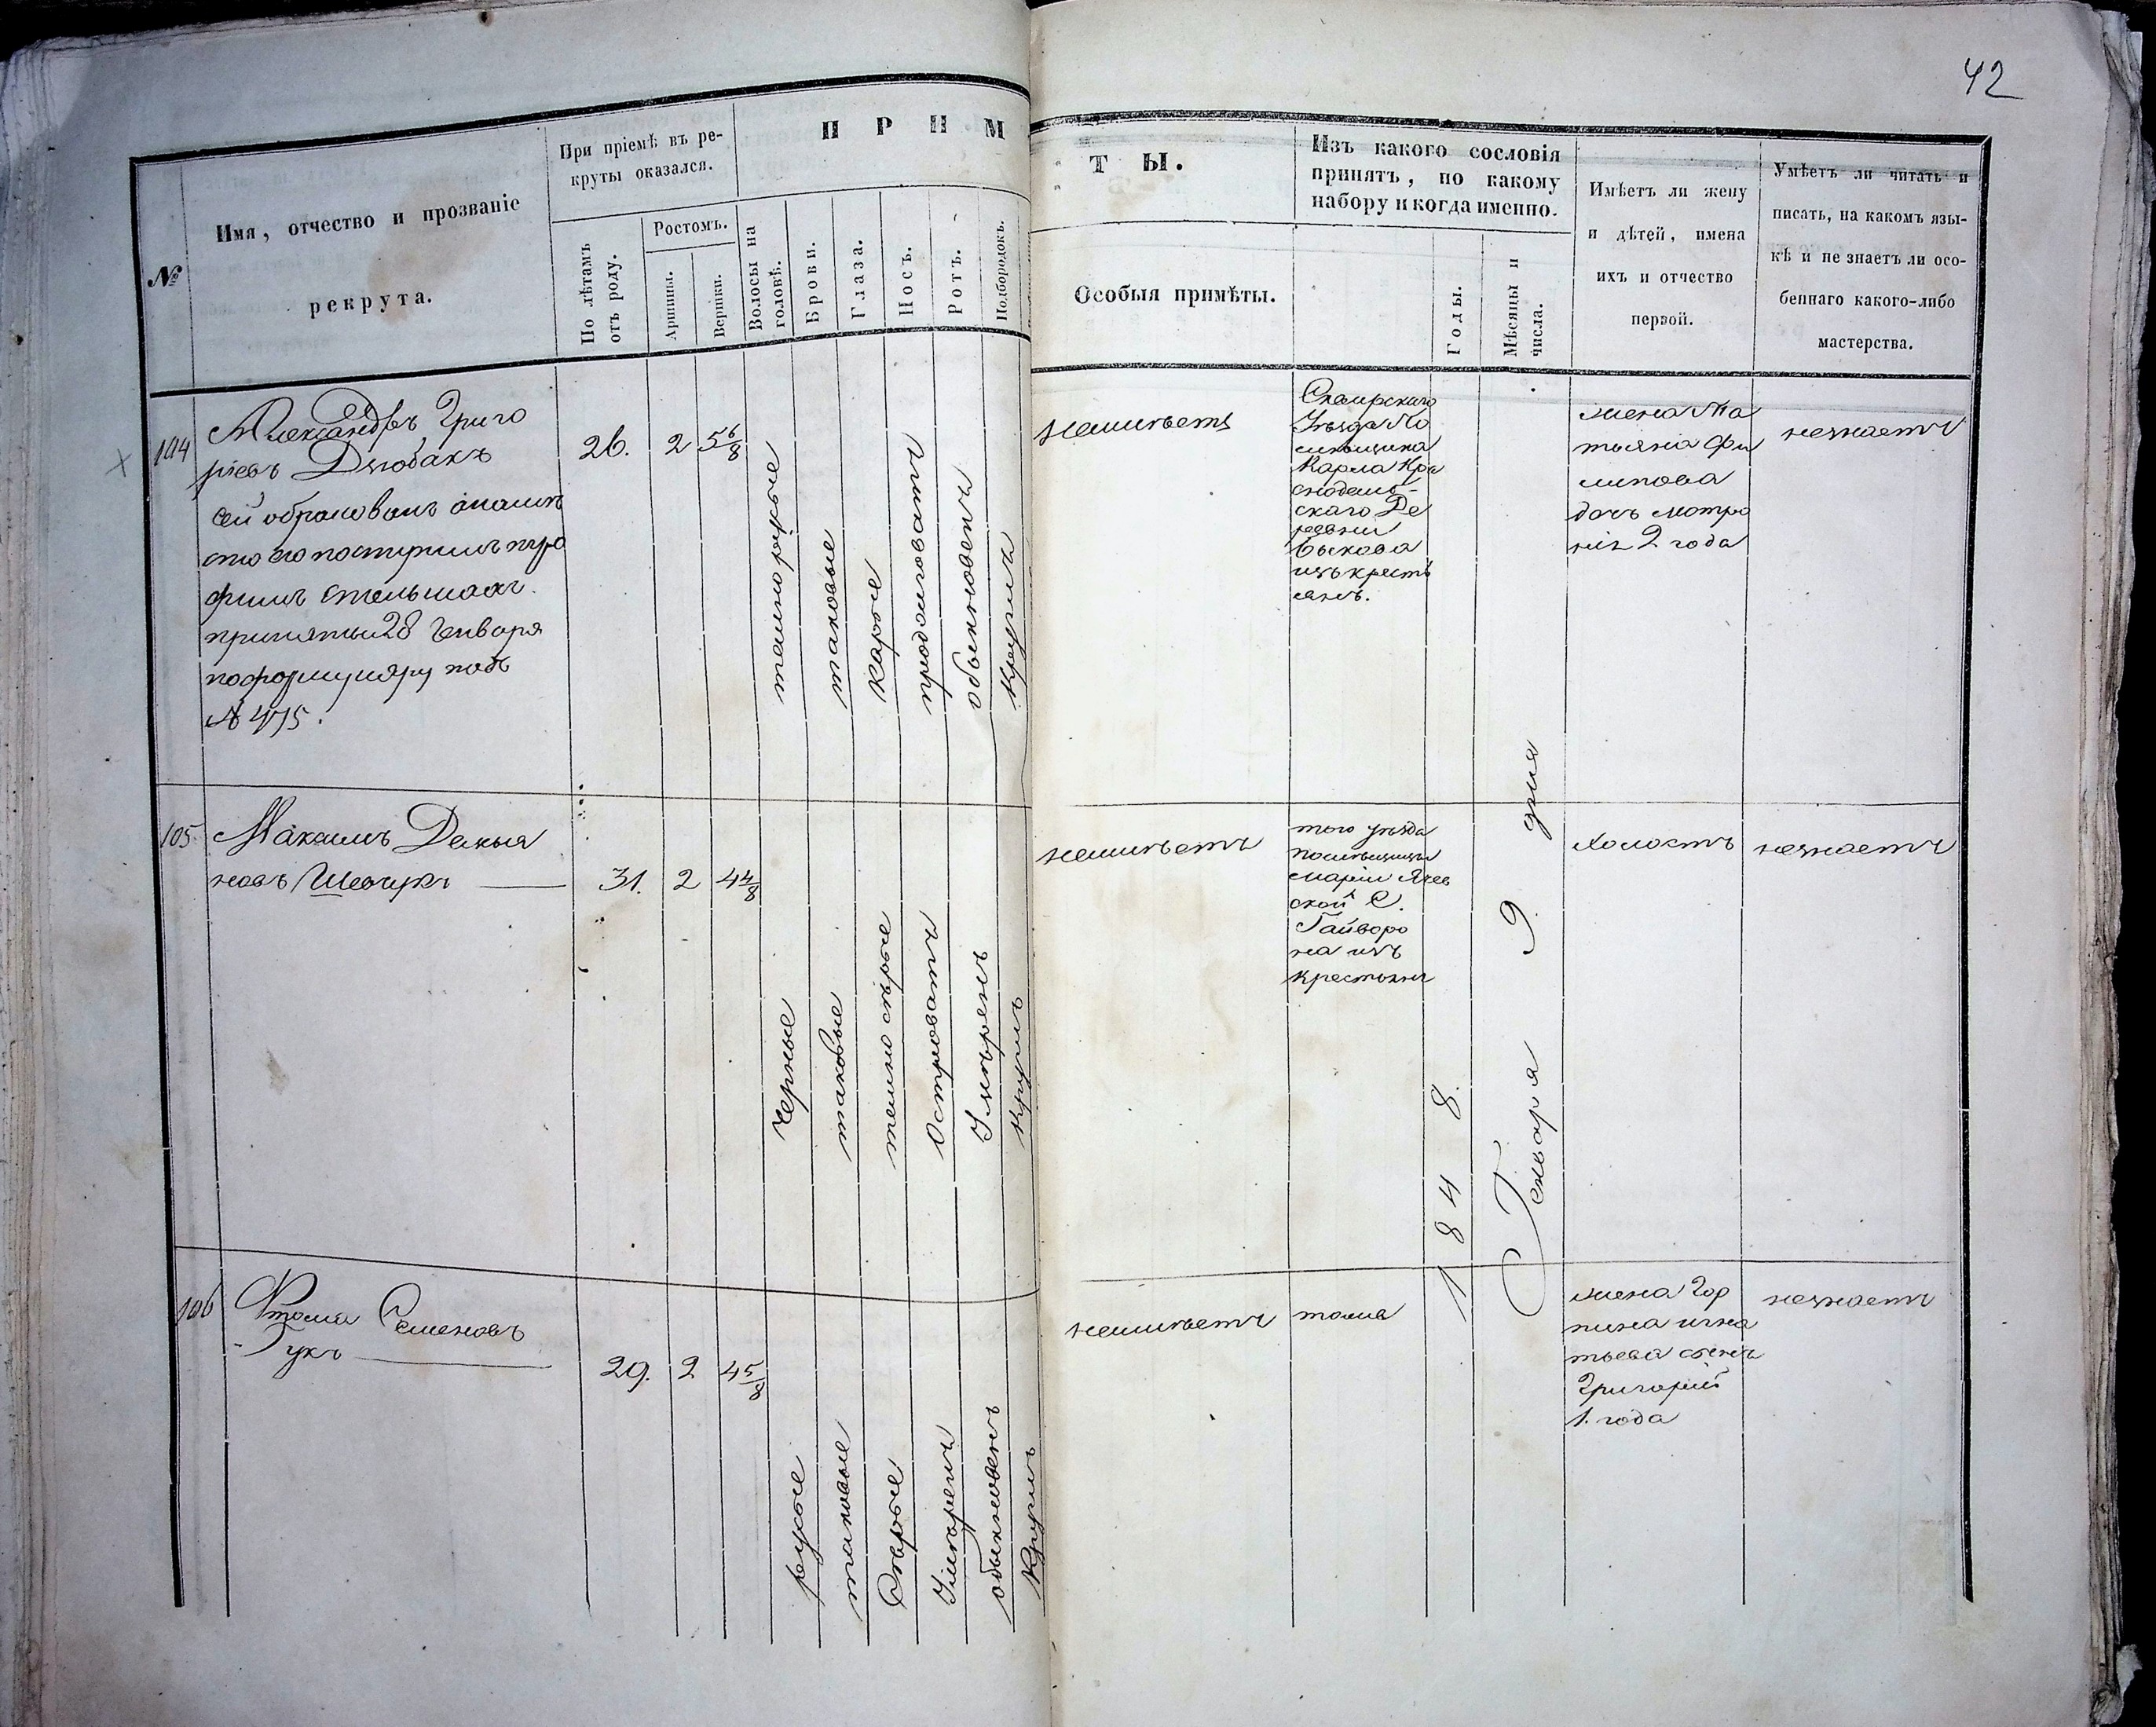 42
№
Имя, отчество и прозваніе
рекрута.
При пріемѣ въ ре-
круты оказался.
По лѣтамъ
отъ роду.
Ростомъ.
Аршины.
Вершки.
П Р И М
Т Ы.
Волосы на
головѣ.
Брови.
Глаза.
Носъ.
Ротъ.
Подбородокъ.
Особыя примѣты.
Изъ какого сословія
принятъ, по какому
набору и когда именно.
Годы.
Мѣсяцы и
числа.
Имѣетъ ли жену
и дѣтей, имена
ихъ и отчество
первой.
Умѣетъ ли читать и
писать, на какомъ язы-
кѣ и не знаетъ ли осо-
беннаго какого-либо
мастерства.
104
Александръ Григо
ріевъ Дзюбакъ
сей обракованъ анамѣ
сто его поступилъ тро
фимъ Стельмахъ
принятый 28 Генваря
по формуляру подъ
№ 475.
26.
2
5 6/8
темнорусые
таковые
Карые
продолговатъ
обыкновенъ
Круглъ
неимѣетъ
Сквирскаго
Уѣзда По
мѣщика
Карла
скаго Де
ревни
Быкова
изъ кресть
янъ.
жена Та
тьяна Фи
липова
дочь Мотро
на 2 года
незнаетъ
105
Максимъ Демья
новъ Шевчукъ
31.
2
4 4/8
Черные
таковые
темно сѣрые
Островатъ
Умѣренъ
Круглъ
неимѣетъ
того уѣзда
помѣщицы
Маріи
ской С.
Гайворо
на изъ
крестьянъ
Холостъ
незнаетъ
1848.
Генваря 9 дня
106
Фтома Семеновъ
Гукъ
29.
2
4 5/8
русые
таковые
Сѣрые
Умѣренъ
обыкновенъ
Круглъ
неимѣетъ
тожъ
жена Гор
пина Игна
тьева сынъ
Григорій
1. года
незнаетъ